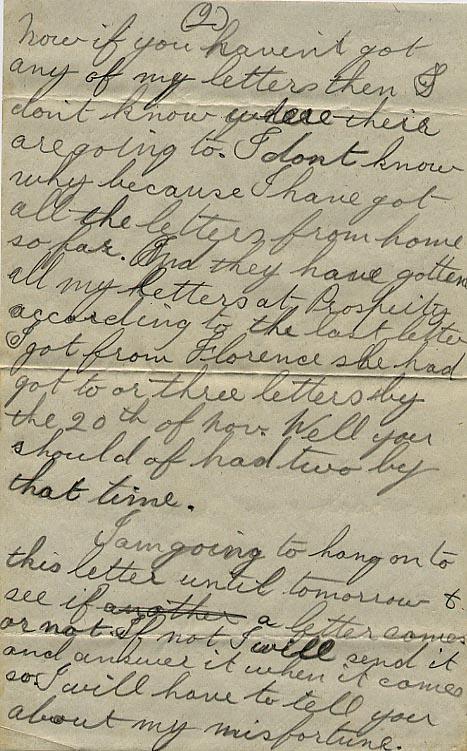 (2)
Now if you havent got
any of my letters then I
dont know where their
are going to. I dont know
why because I have got
all the letters from home
so far. And they have gotten
all my letters at Prosperity
according to the last letter
I got from Florence she had
got to or three letters by
the 20th of Nov. Well you
should of had two by
that time.
I am going to hang on to
this letter until tomorrow &
see if another a letter comes
or not. If not I will send it
and answer it when it comes
so. I will have to tell you
about my misfortune.